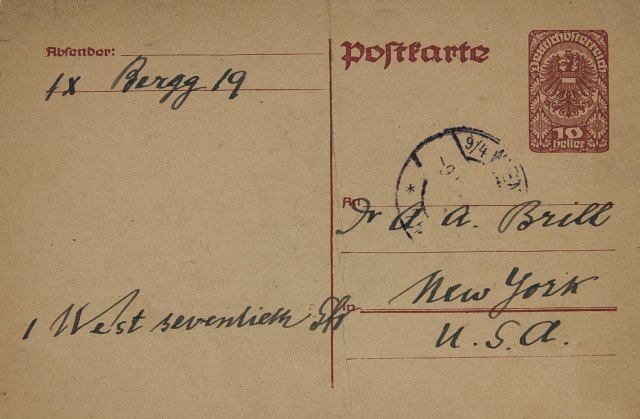 Absender:
IX Bergg 19
1 West seventieth Str
Postkarte
Deutschösterreich
10
Heller
9/4 WIEN
An
Dr A A. Brill
New York
in
U.S.A.